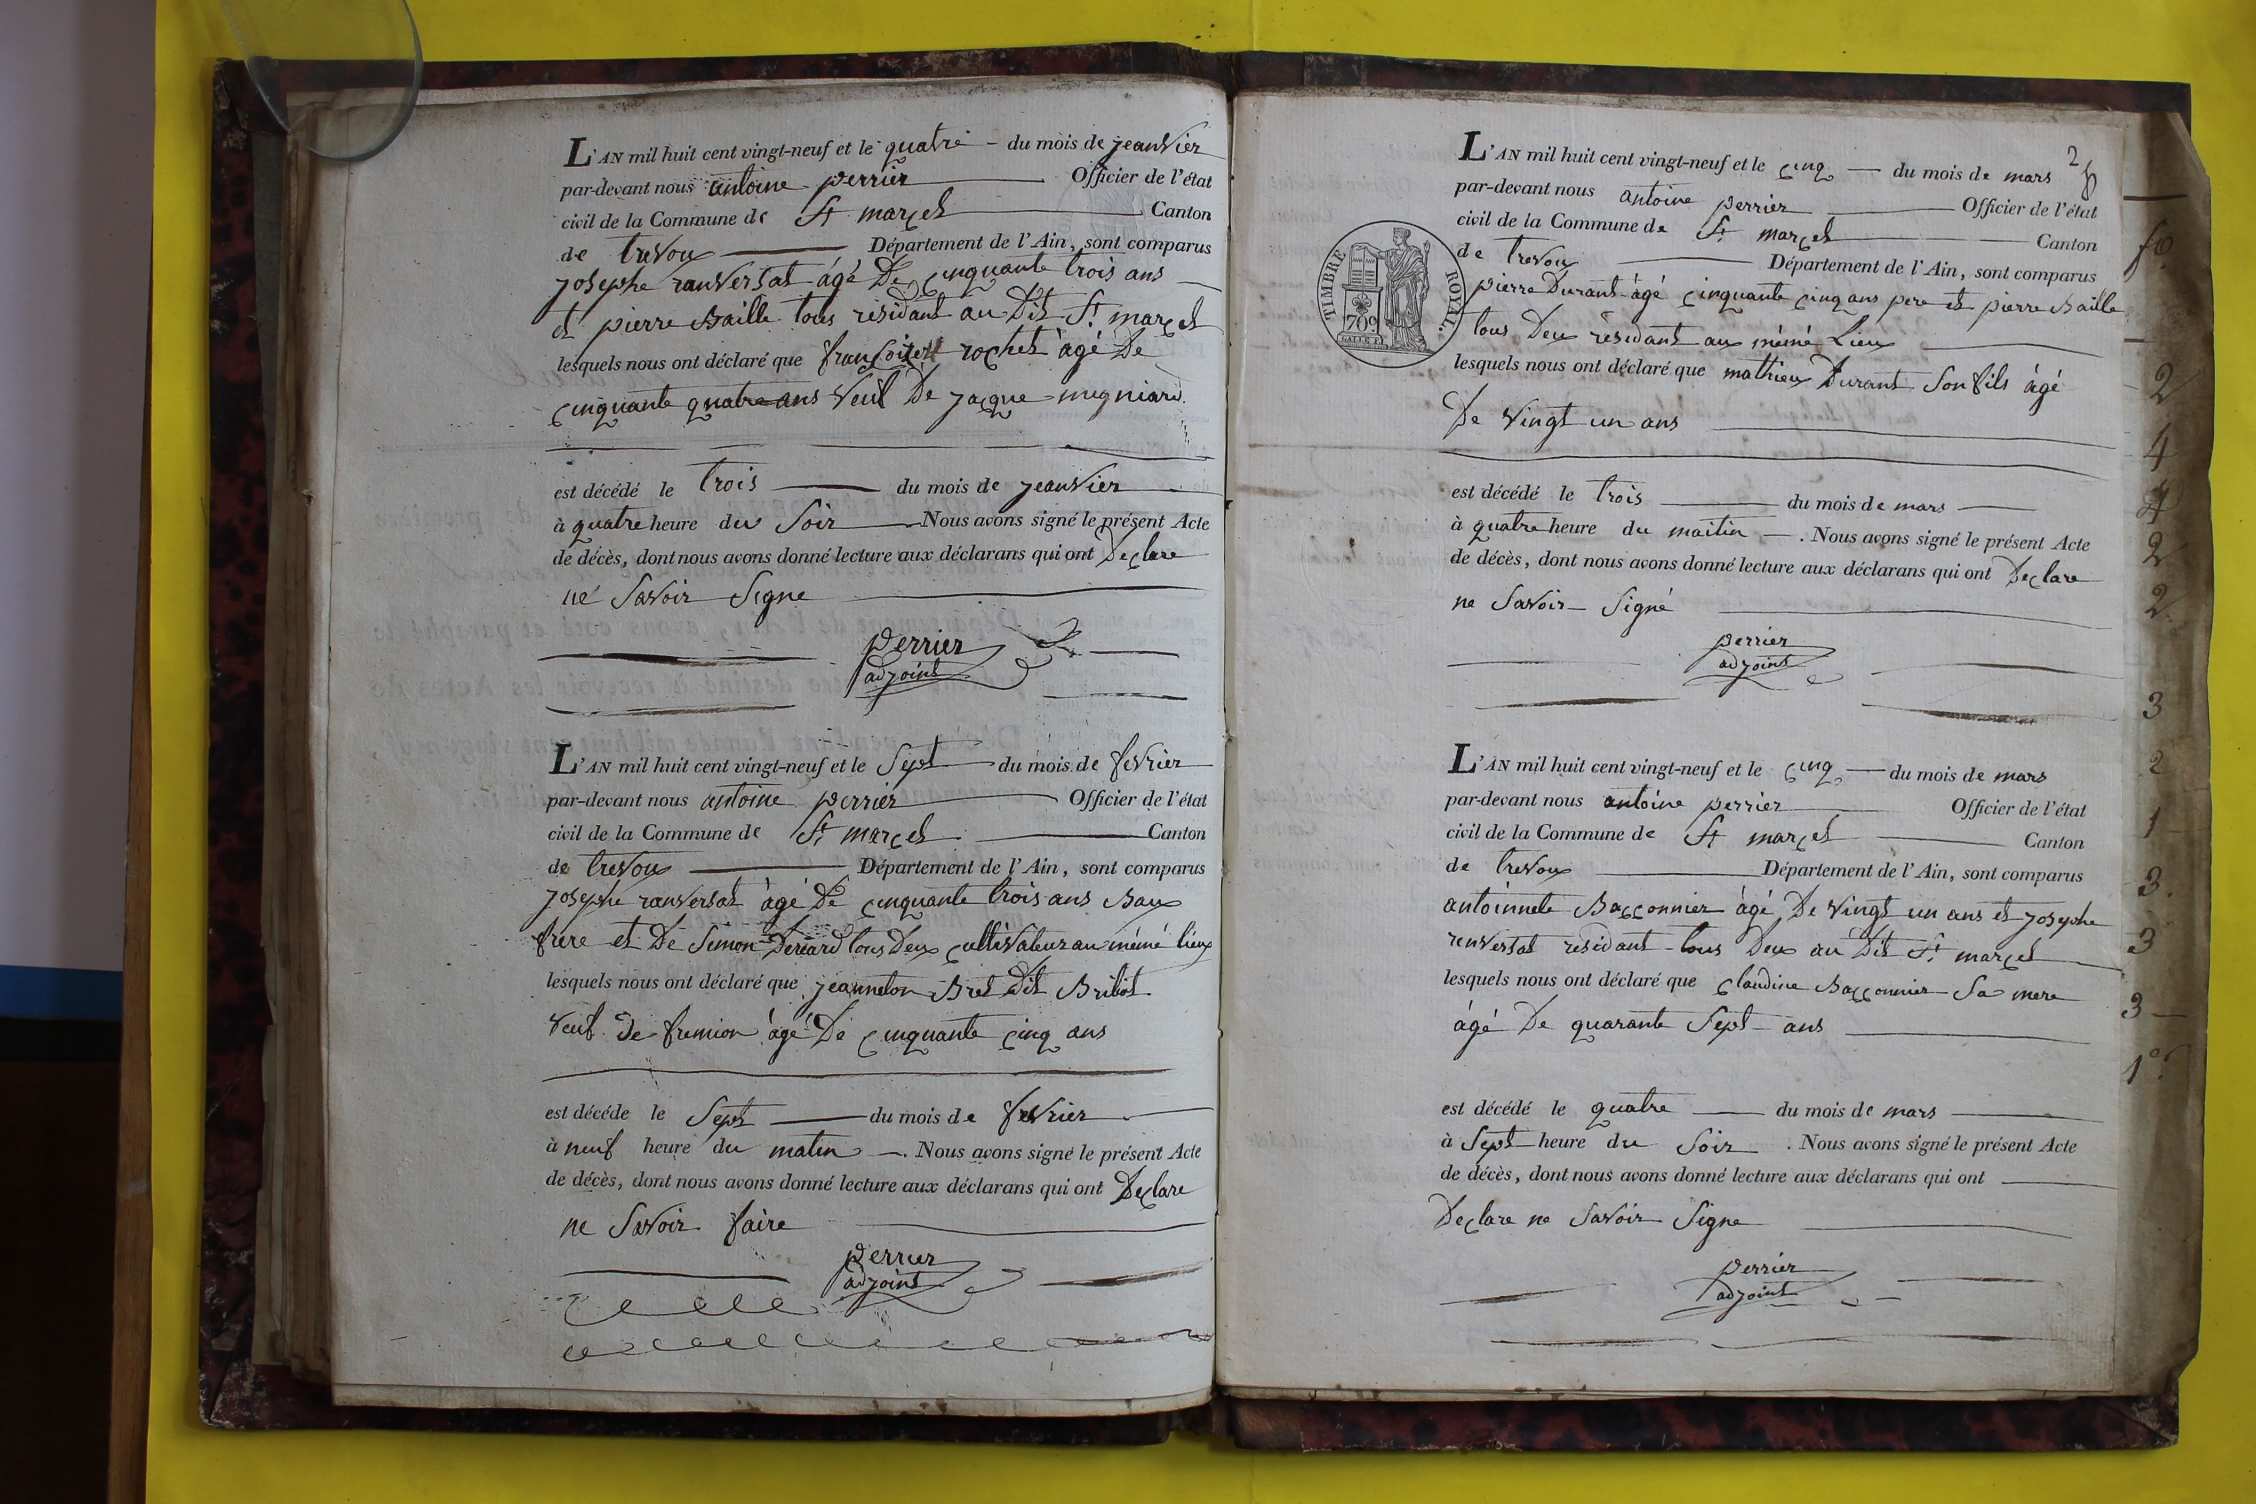 L'AN mil huit cent vingt-neuf et le quatre - du mois de jeanvier
par-devant nous antoine perrier Officier de l'état
civil de la Commune de St marcel Canton
de trevoux Département de l'Ain, sont comparus
josephe ranversat âgé De cinquante trois ans
et pierre Baille tous residant au Dit St marcel
lesquels nous ont déclaré que rochet âgé De
cinquante quatre ans veuf De jacque mugniard
est décédé le trois du mois de jeanvier
à quatre heure du Soir Nous avons signé le présent Acte
de décès, dont nous avons donné lecture aux déclarans qui ont Declare
ne Savoir Signe
perrier
adjoint
L'AN mil huit cent vingt-neuf et le Sept du mois de fevrier
par-devant nous antoine perrier Officier de l'état
civil de la Commune de St marcel Canton
de trevoux Département de l'Ain, sont comparus
josephe ranversat âgé De cinquante trois ans Baux
frere et De Simon tous Deux cultivateur au méme lieux
lesquels nous ont déclaré que jeanneton Bret Dit Britot
veuf De fremion âgé De cinquante cinq ans
est décédé le Sept du mois de fevrier
à neuf heure du matin . Nous avons signé le présent Acte
de décès, dont nous avons donné lecture aux déclarans qui ont Declare
ne Savoir faire
perrier
adjoint
2
L'AN mil huit cent vingt-neuf et le cinq du mois de mars
par-devant nous antoine perrier Officier de l'état
civil de la Commune de St marcel Canton
de trevoux Département de l'Ain, sont comparus
TIMBRE ROYAL.
70c
pierre Durant âgé cinquante cinq ans pere et pierre Baille
tous Deux residant au méme Lieux
lesquels nous ont déclaré que mathieu Durant Son fils âgé
De vingt un ans
est décédé le trois du mois de mars
à quatre heure du maitin . Nous avons signé le présent Acte
de décès, dont nous avons donné lecture aux déclarans qui ont Declare
ne Savoir Signé
perrier
adjoint
L'AN mil huit cent vingt-neuf et le cinq du mois de mars
par-devant nous antoine perrier Officier de l'état
civil de la Commune de St marcel Canton
de trevoux Département de l'Ain, sont comparus
antoinnete Bacconnier âgé De vingt un ans et josephe
renversat residant tous Deux au Dit St marcel
lesquels nous ont déclaré que Claudine Bacconnier Sa mere
âgé De quarante Sept ans
est décédé le quatre du mois de mars
à Sept heure du Soir . Nous avons signé le présent Acte
de décès, dont nous avons donné lecture aux déclarans qui ont
Declare ne Savoir Signe
perrier
adjoint
2
4
4
2
2
3
2
1
3.
3
3